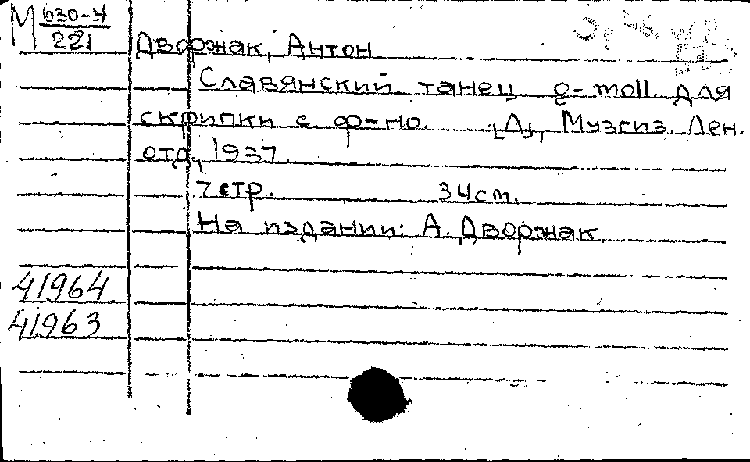 М 630-4
221
Дворжак, Антон
Славянский танец e-moll для
скрипки с ф-но. [Л], Музгиз. Лен.
отд, 1937.
7 стр. 34 см.
На издании: А. Дворжак
41964
41963